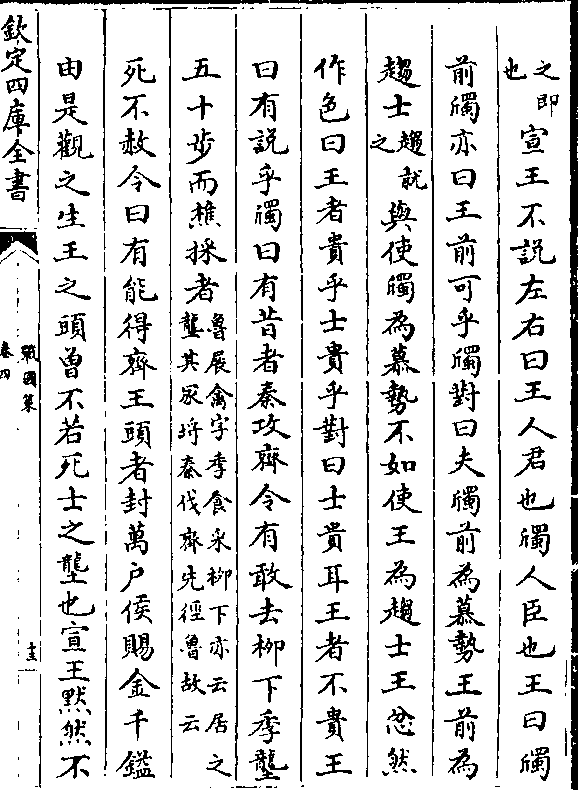 之即也宣王不說左右曰王人君也斶人臣也王曰斶
前斶亦曰王前可乎斶對曰夫斶前為慕勢王前為
趨士趨就之與使斶為慕勢不如使王為趨士王忿然
作色曰王者貴乎士貴乎對曰士貴耳王者不貴王
曰有説乎斶曰有昔者秦攻齊令有敢去栁下季壟
五十步而樵採者魯展禽字季食采栁下亦云居之壟其冢時秦伐齊先徑魯故云
死不赦令曰有能得齊王頭者封萬户侯賜金千鎰
由是觀之生王之頭曽不若死士之壟也宣王黙然不
欽定四庫全書
戰國策
卷四
十三